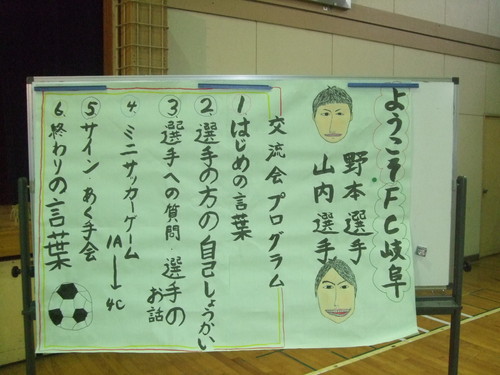 ようこそFC岐阜
野本選手
山内選手
交流会プログラム
1 はじめの言葉
2. 選手の方の自己しょうかい
3. 選手への質問・選手の
お話
4. ミニサッカーゲーム
1A→4C
5 サインあく手会
6. 終わりの言葉